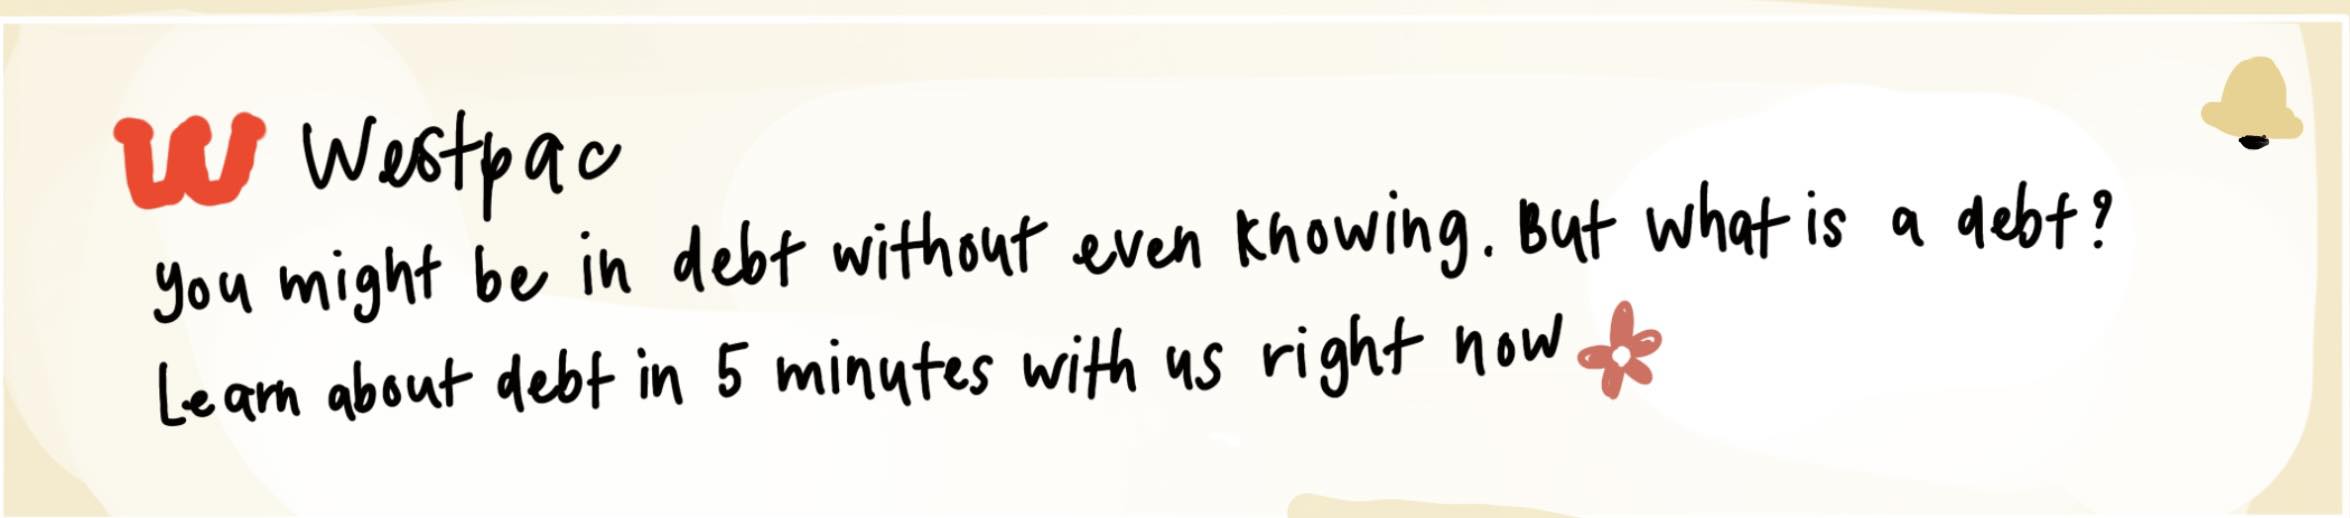 W Westpac
you might be in debt without even knowing. But what is a debt?
Learn about debt in 5 minutes with us right now